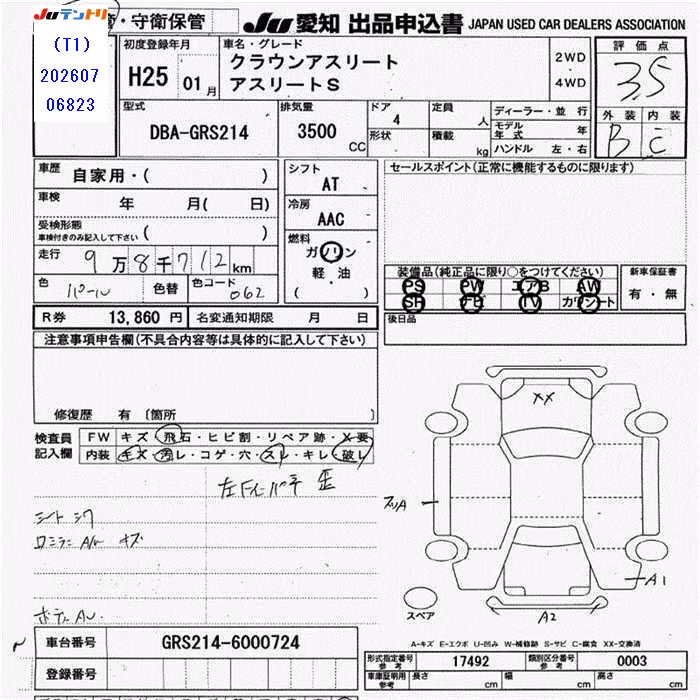 Juテントリ
(T1)
202607
06823
・守衛保管
JU 愛知 出品申込書 JAPAN USED CAR DEALERS ASSOCIATION
初度登録年月
H25 01月
車名・グレード
クラウンアスリート
アスリートS
2WD
4WD
評価点
3.5
外装 内装
B C
型式
DBA-GRS214
排気量
3500
CC
ドア
4
形状
定員
人
積載
kg
ディーラー・並行
モデル年式 年
ハンドル 左・右
車歴
自家用・( )
車検 年 月( 日)
受検形態
車検付きのみ記入して下さい ( )
走行 9万8千712km
色 パール 色替 色コード 062
シフト
AT
冷房
AAC
燃料
ガソリン
軽・油
( )
セールスポイント(正常に機能するものに限ります)
装備品(純正品に限り○をつけてください)
PS PW エアB AW
SR ナビ TV カワシート
新車保証書
有・無
R券 13,860円 名変通知期限 月 日
後日品
注意事項申告欄(不具合内容等は具体的に記入して下さい)
修復歴 有 〔箇所
検査員
記入欄
FW キズ・飛石・ヒビ割・リペア跡・X要
内装 キズ・汚レ・コゲ・穴・スレ・キレ・破レ
シート シワ
キズ
XX
A1
A2
スペア
A-キズ E-エクボ U-凹み W-補修跡 S-サビ C-腐食 XX-交換済
車台番号 GRS214-6000724
登録番号
形式指定番号 参考 17492 類別区分番号 参考 0003
車庫証明用 参考 長さ cm 幅 cm 高さ cm